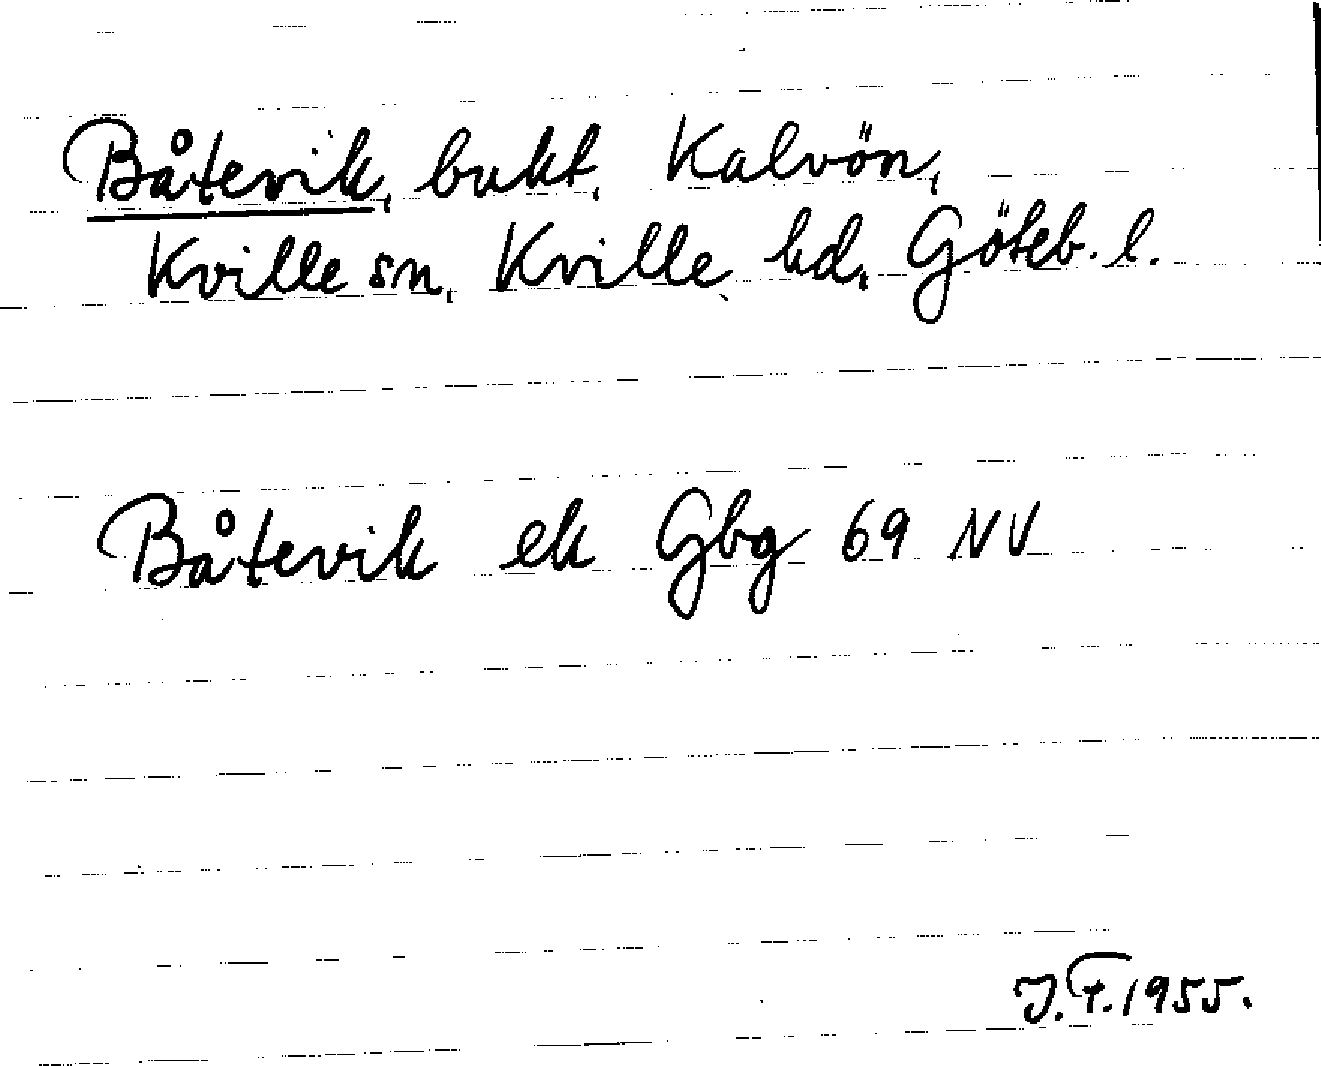 Båtevik, bukt, Kalvön,
Kville sn, Kville hd, Göteb. l.
Båtevik ek Gbg 69 NV
J.F. 1955.